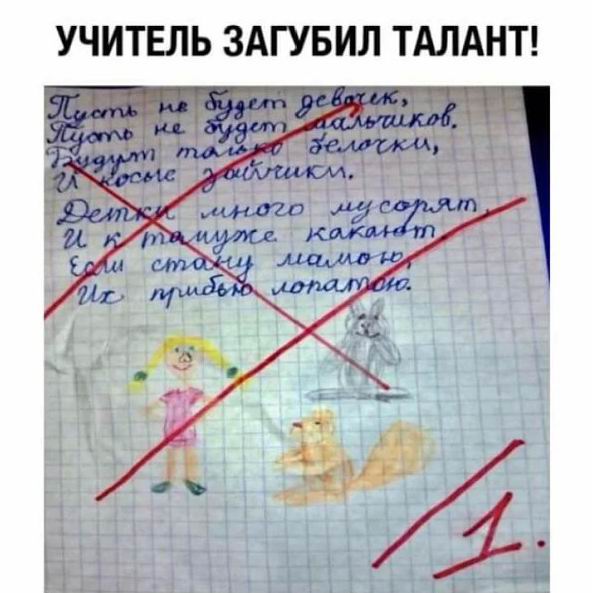 УЧИТЕЛЬ ЗАГУБИЛ ТАЛАНТ!
Пусть не будет девочек,
Пусть не будет мальчиков.
Будут только белочки,
И косые зайчики.
Детки много мусорят,
И к тамуже какают
Если стану мамою,
Их прибью лопатою.
1.